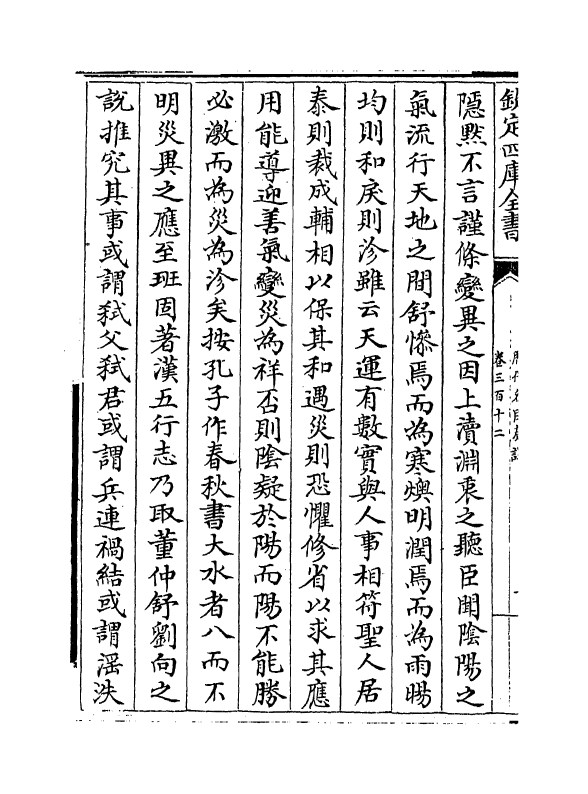 欽定四庫全書
卷三百十二
隱黙不言謹條變異之因上瀆淵衷之聽臣聞陰陽之
氣流行天地之間舒慘焉而為寒燠明潤焉而為雨暘
均則和戾則沴雖云天運有數實與人事相符聖人居
泰則裁成輔相以保其和遇災則恐懼修省以求其應
用能導迎善氣變災為祥否則陰凝於陽而陽不能勝
必激而為災為沴矣按孔子作春秋書大水者八而不
明災異之應至班固著漢五行志乃取董仲舒劉向之
說推究其事或謂弑父弑君或謂兵連禍結或謂淫泆